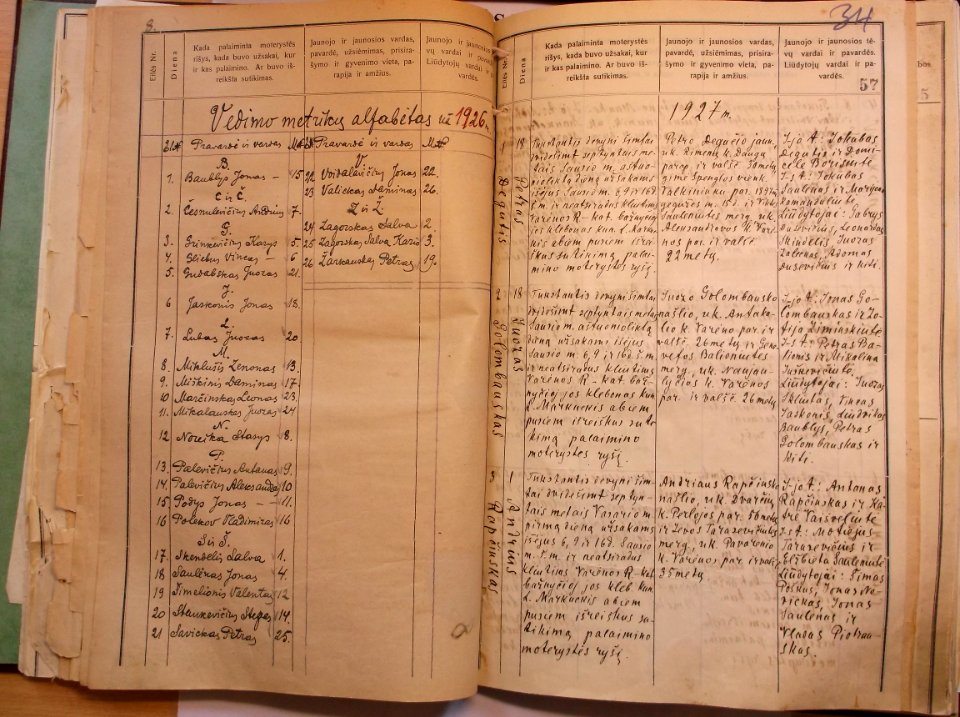 8.
Eilės Nr.
Diena
Kada palaiminta moterystės
rišys, kada buvo užsakai, kur
ir kas palaimino. Ar buvo iš-
reikšta sutikimas.
Jaunojo ir jaunosios vardas,
pavardė, užsiėmimas, prisira-
šymo ir gyvenimo vieta, pa-
rapija ir amžius.
Jaunojo ir jaunosios
tėvų vardai ir pa-
vardės. Liūdytojų
vardai ir pa-
vardės.
Vedimo metrikų alfabėtas už 1926 m.
Pravardė ir vardas
B.
1. Baublys Jonas — 15
C ir Č.
2. Česnulevičius Andrius 7.
G.
3. Grinkevičius Kazys 5.
4. Gliebus Vincas — 6
5. Gudabskas Juozas 21.
J.
6 Jaskonis Jonas 18.
L
7. Lubas Juozas 20
M.
8. Miklušis Zenonas 13.
9. Miškinis Daminas 17.
10 Marčinskas Leonas 23.
11. Mikalauskas Juozas 24
N.
12 Noreika Stasys 8.
P.
13. Palevičius Antanas 9.
14. Palevičius Aleksandras 10
15 Podys Jonas — 11.
16 Polekov Vladimiras 16
S ir Š.
17 Skendelis Salva 1.
18 Saulėnas Jonas 4.
19 Simelionis Valentas 12
20 Stankevičius Stepas 14.
21 Savickas Petras 25.
Pravardė ir vardas
V.
22 Voidalavičius Jonas 22.
23 Valickas Daminas 26.
Z ir Ž
24 Zagorskas Salva 2.
25 Zagorskas Salva Kazio 3.
26 Žarkauskas Petras 19.
34
57
Eilės Nr.
Diena
Kada palaiminta moterystės
rišys, kada buvo užsakai, kur
ir kas palaimino. Ar buvo iš-
reikšta sutikimas.
Jaunojo ir jaunosios vardas,
pavardė, užsiėmimas, prisira-
šymo ir gyvenimo vieta, pa-
rapija ir amžius.
Jaunojo ir jaunosios tė-
vų vardai ir pavardės.
Liūdytojų vardai ir pa-
vardės.
1927 m.
1
18
Petras Degutis
Tūkstantis devyni šimtai
dvidešimt septyntais me-
tais Sausio m. aštuo-
nioliktą dieną užsakams
išėjus Sausio m. 6, 9 ir 16 d.
š.m. ir neatsiradus kliutims
Varėnos R-kat. bažnyčioj
jos klebonas kun. L. Markue-
nis abiem pusiem išrei-
škus sutikimą, palai-
mino moterystės ryšį.
Petro Degučio jaun.
uk. Zimėnų k. Daugų
parap. ir valšč. 30 metų
gimė Spenglos vienk.
Valkininkų par. 1897 m.
Aleksandravos k. Varė-
nos par. ir valšč.
22 metų.
Jojo t.: Jokubas
Degutis ir Domi-
cėlė Borisutė
Jos t. Jokubas
Saulėnas ir Marijona
Liūdytojai: Gabrys
Dusevičius, Leonardas
Skindėlis, Juozas
Zalenas, Adomas
Dusevičius ir kiti.
2
18
Juozas Golombauskas
Tūkstantis devyni šimtai
dvidešimt septyntais metais
Sausio m. aštuonioliktą
dieną užsakams išėjus
Sausio m 6, 9 ir 16 d. š.m.
ir neatsiradus kliutims
Varėnos R-kat. baž-
nyčioj jos klebonas kun.
L. Markuenis abiem
pusiem išreiškus suti-
kimą palaimino
moterystės ryšį.
Juozo Golombausko
našlio, uk. Antaka-
lio k. Varėno par. ir
valšč. 26 metų ir Gene-
vefos Balioniutės
merg. uk. Naujan-
lyčios k. Varėnos
par. ir valšč. 26 metų
Jojo t.: Jonas Go-
lombauskas ir Zo-
fija Ziminskiutė
Jos t.: Petras Ba-
lionis ir Mikolina
Juškevičiutė
Liūdytojai: Juozas
Skliutas, Vincas
Jaskonis, Liudvikas
Baublys, Petras
Golombauskas ir
kiti.
3
1
Andrius Rapčinskas
Tūkstantis devyni šim-
tai dvidešimt septyn-
tais metais Vasario m.
pirmą dieną užsakams
išėjus 6, 9 ir 16 d. Sausio
m. š.m. ir neatsiradus
kliutims Varėnos R-kat
bažnyčioj jos kleb kun.
L. Markuenis abiem
pusiem išreiškus su-
tikimą palaimino
moterystės ryšį.
Andriaus Rapčinsko
našlio, uk. Dvarčių
k. Perlojos par. 56 metų
ir Ievos Tarasevičiutės
merg. uk. Pavarėnio
k. Varėnos par. ir valšč.
35 metų
Jojo t.: Antanas
Rapčinskas ir Ka-
trė Vaisvėliutė
Jos t.: Motiejus
Tarasevičius ir
Elžbieta Sauleniutė
Liūdytojai: Simas
Poškus, Jonas
Jonas
Saulėnas ir
Vladas Piotrau-
skas.